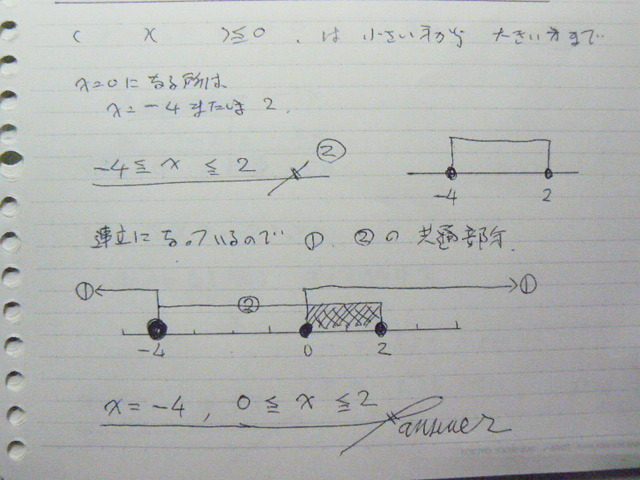 (　　)(　　)≦0 、は 小さい方から 大きい方まで
x=0になる所は
x=-4 または 2.
-4≦x≦2 ②
-4 2
連立になっているので ①、②の 共通部分.
① ② ①
-4 0 2
x=-4, 0≦x≦2 answer